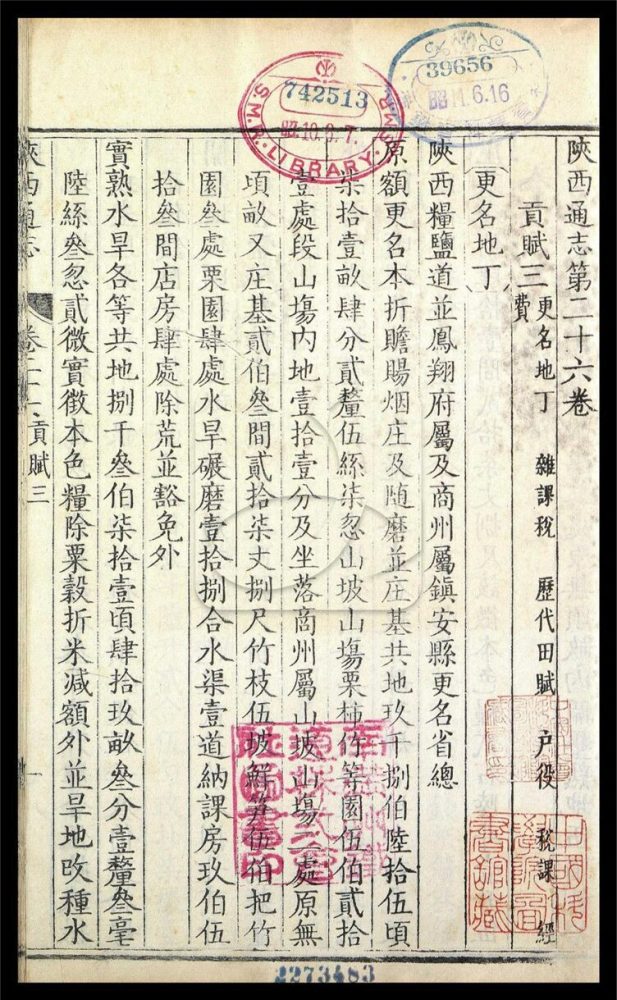 陝西通志第二十六卷
貢賦三 更名地丁 雜課稅 歷代田賦 戶役 稅課 經費
更名地丁
陝西糧鹽道並鳳翔府屬及商州屬鎮安縣更名省總
原額更名本折贍賜烟庄及随磨並庄基共地玖千捌伯陸拾伍頃
柒拾壹畝肆分貳釐伍絲柒忽山坡山塲栗柿竹等園伍伯貳拾
壹處段山塲内地壹拾壹分及坐落商州屬山坡山塲二處原無
頃畝又庄基貳伯叄間貳拾柒丈捌尺竹枝伍坡鮮笋伍伯把竹
園叄處栗園肆處水旱碾磨壹拾捌合水渠壹道納課房玖伯伍
拾叄間店房肆處除荒並豁免外
實熟水旱各等共地捌千叄伯柒拾壹頃肆拾玖畝叄分壹釐叄毫
陸絲叄忽貳微實徵本色糧除粟穀折米减額外並旱地改種水
陝西通志 卷二十 貢賦三 一
742513
昭10.9.7.
S.M.R. LIBRARY
39656
昭11.6.16
2273483